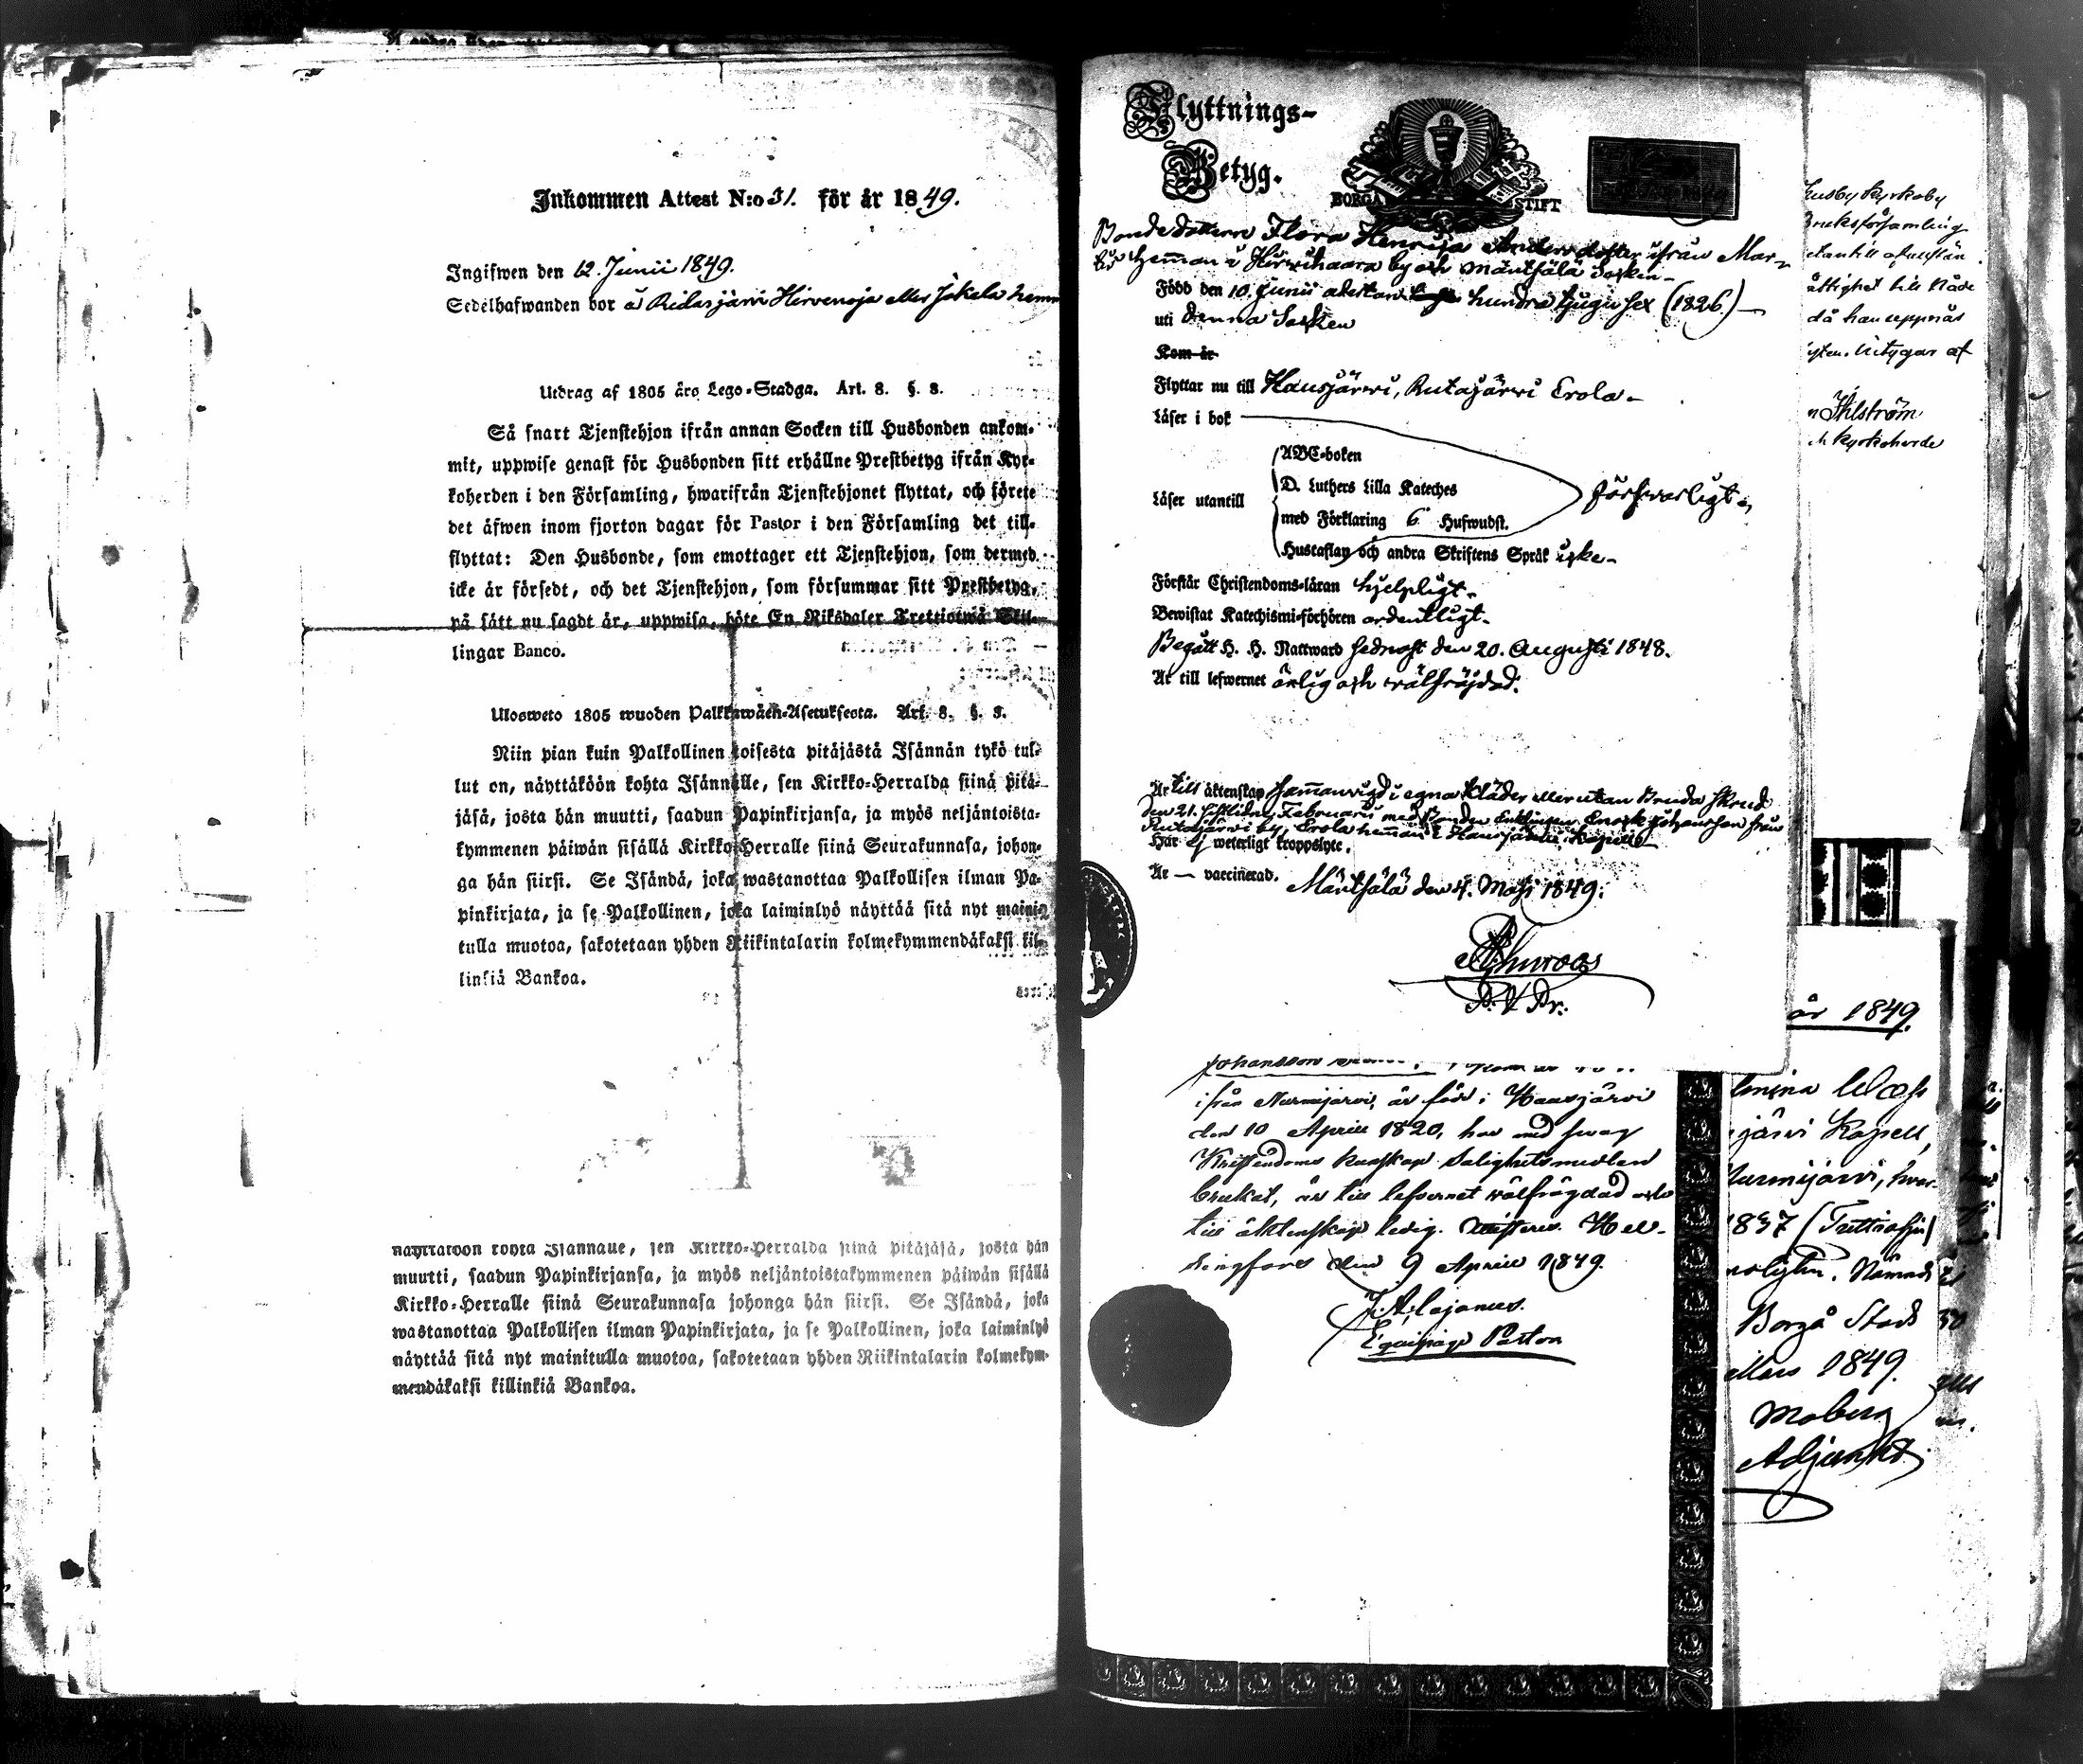 Inkommen Attest N:o 31. för år 1849.
Ingifwen den 12. Junii 1849.
Sedelhafwanden bor å Ridasjärvi Hirvenoja eller Jäkelä hemm
Utdrag af 1805 års Lego-Stadga. Art. 8. §. 8.
Så snart Tjenstehjon ifrån annan Socken till Husbonden ankom-
mit, uppwise genast för Husbonden sitt erhållne Prestbetyg ifrån Kyr-
koherden i den Församling, hwarifrån Tjenstehjonet flyttat, och förete
det äfwen inom fjorton dagar för Pastor i den Församling det till-
flyttat: Den Husbonde, som emottager ett Tjenstehjon, som dermed
icke är försedt, och det Tjenstehjon, som försummar sitt Prestbetyg,
på sätt nu sagdt är, uppwisa, böte En Riksdaler Trettiotwå Skil-
lingar Banco.
Ulosweto 1805 wuoden Palkkawäen-Asetuksesta. Art. 8. §. 8.
Niin pian kuin Palkollinen toisesta pitäjästä Isännän tykö tul-
lut on, näyttäköön kohta Isännälle, sen Kirkko-Herralda siinä pitä-
jäsä, josta hän muutti, saadun Papinkirjansa, ja myös neljäntoista-
kymmenen päiwän sisällä Kirkko-Herralle siinä Seurakunnasa, johon-
ga hän siirsi. Se Isändä, joka wastanottaa Palkollisen ilman Pa-
pinkirjata, ja se Palkollinen, joka laiminlyö näyttää sitä nyt maini-
tulla muotoa, sakotetaan yhden Riikintalarin kolmekymmendäkaksi kil-
linkiä Bankoa.
näyttäköön kohta Isännälle, sen Kirkko-Herralda siinä pitäjäsä, josta hän
muutti, saadun Papinkirjansa, ja myös neljäntoistakymmenen päiwän sisällä
Kirkko-Herralle siinä Seurakunnasa johonga hän siirsi. Se Isändä, joka
wastanottaa Palkollisen ilman Papinkirjata, ja se Palkollinen, joka laiminlyö
näyttää sitä nyt mainitulla muotoa, sakotetaan yhden Riikintalarin kolmekym-
mendäkaksi killinkiä Bankoa.
Flyttnings-
Betyg.
BORGÅ STIFT
Bondedottern Flora Henrica Andersdotter ifrån Mar-
hemman i Hirvihaara by och Mäntsälä Socken-
Född den 10. Junii adertan hundra tjugu sex (1826)-
uti denna Socken
Kom år
Flyttar nu till Hausjärvi, Rutajärvi Erola-
Läser i bok
Läser utantill
ABC-boken
D. Luthers Lilla Kateches
med Förklaring 6 Hufwudst.
Hustaflan och andra Skriftens Språk icke-
försvarligt-
Förstår Christendoms-läran hjelpligt-
Bewistat Katechismi-förhören ordentligt-
Begått H. H. Nattward sednast den 20. Augusti 1848.
Är till lefwernet ärlig och välfräjdad.
Är till äktenskap sammanvigd i egna kläder eller utan Bruda skrud
den 21. sistlidne Februarii med Bonden Enklingen Enock Johansson från
Rutajärvi by, Erola hemman i Hausjärvi Kapell
Har ej weterligt kroppslyte.
Är — vaccinerad.
Mäntsälä den 4. Maji 1849.
P. V. Pr.
Johansson
ifrån Nurmijärvi, är född i Hausjärvi
den 10 April 1820, har med svag
Kristendoms kunskap salighetsmedlen
brukat, är till lefvernet välfrägdad och
till äktenskap ledig. Hel-
singfors den 9 April 1849.
J. A. Cajanus.
Equipage Pastor
husby kyrkoby
Bruksförsamling
rättighet till Nåde
då han uppnås
betygar af
Ihlström
kyrkoherde
år 1849.
järvi Kapell,
Nurmijärvi, hvar-
1837 (Trettiosju)
Borgå Stad
Mars 1849.
Moberg
Adjunkt.